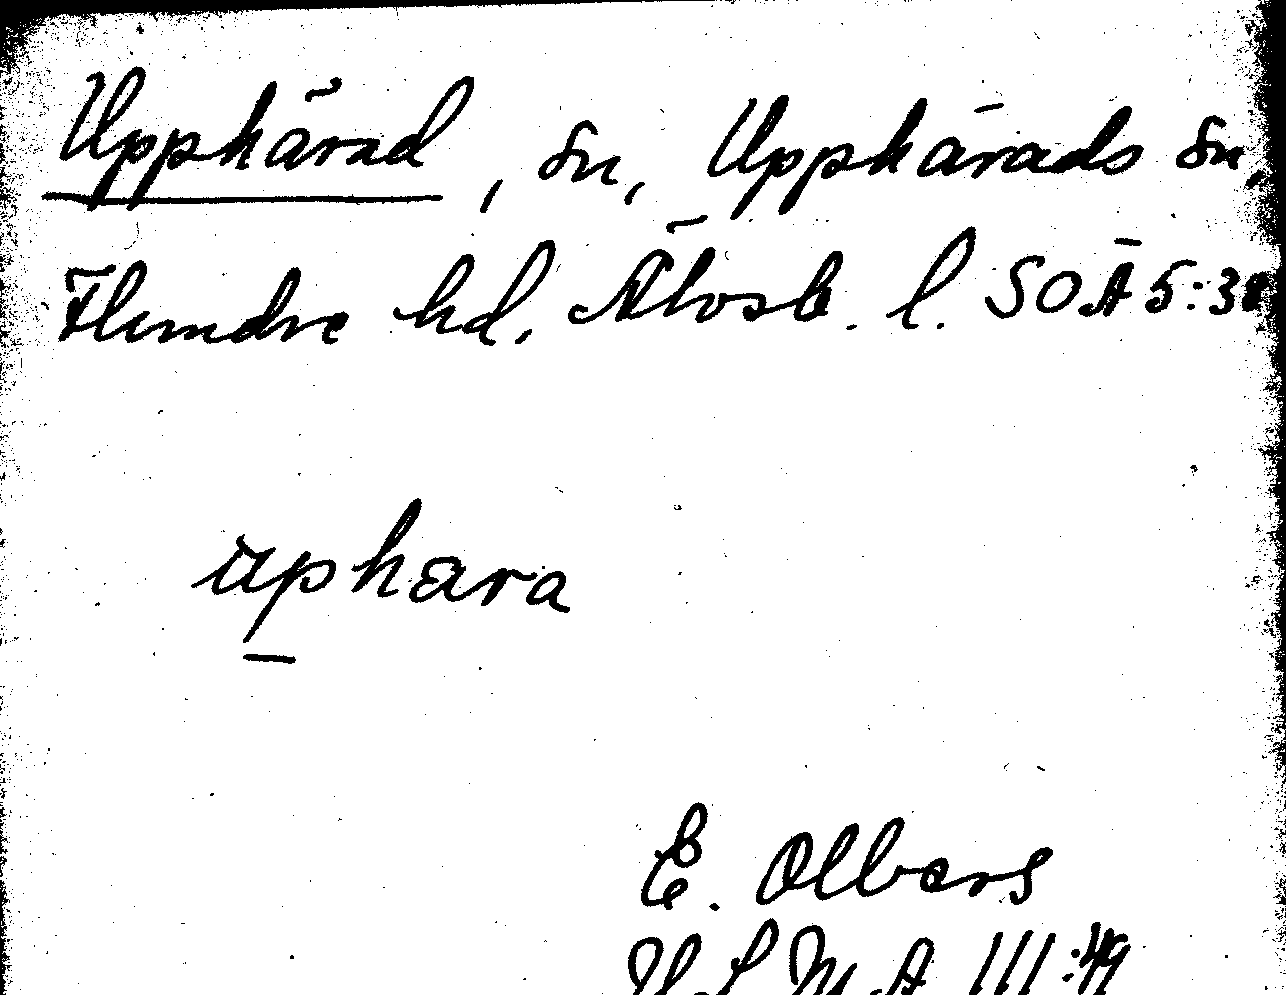 Upphärad, sn, Upphärads sn,
Flundre hd, Älvsb. l. SOÄ 5:38
uphæra
E. Olbers
III:49